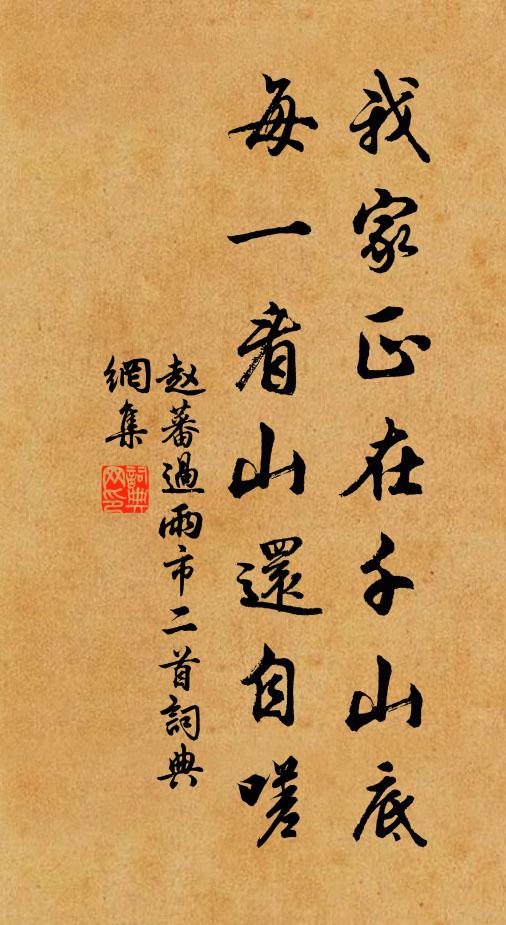 我家正在千山底
每一看山還自嗟
赵蕃過雨市二首詞典
網集
詞典
网印